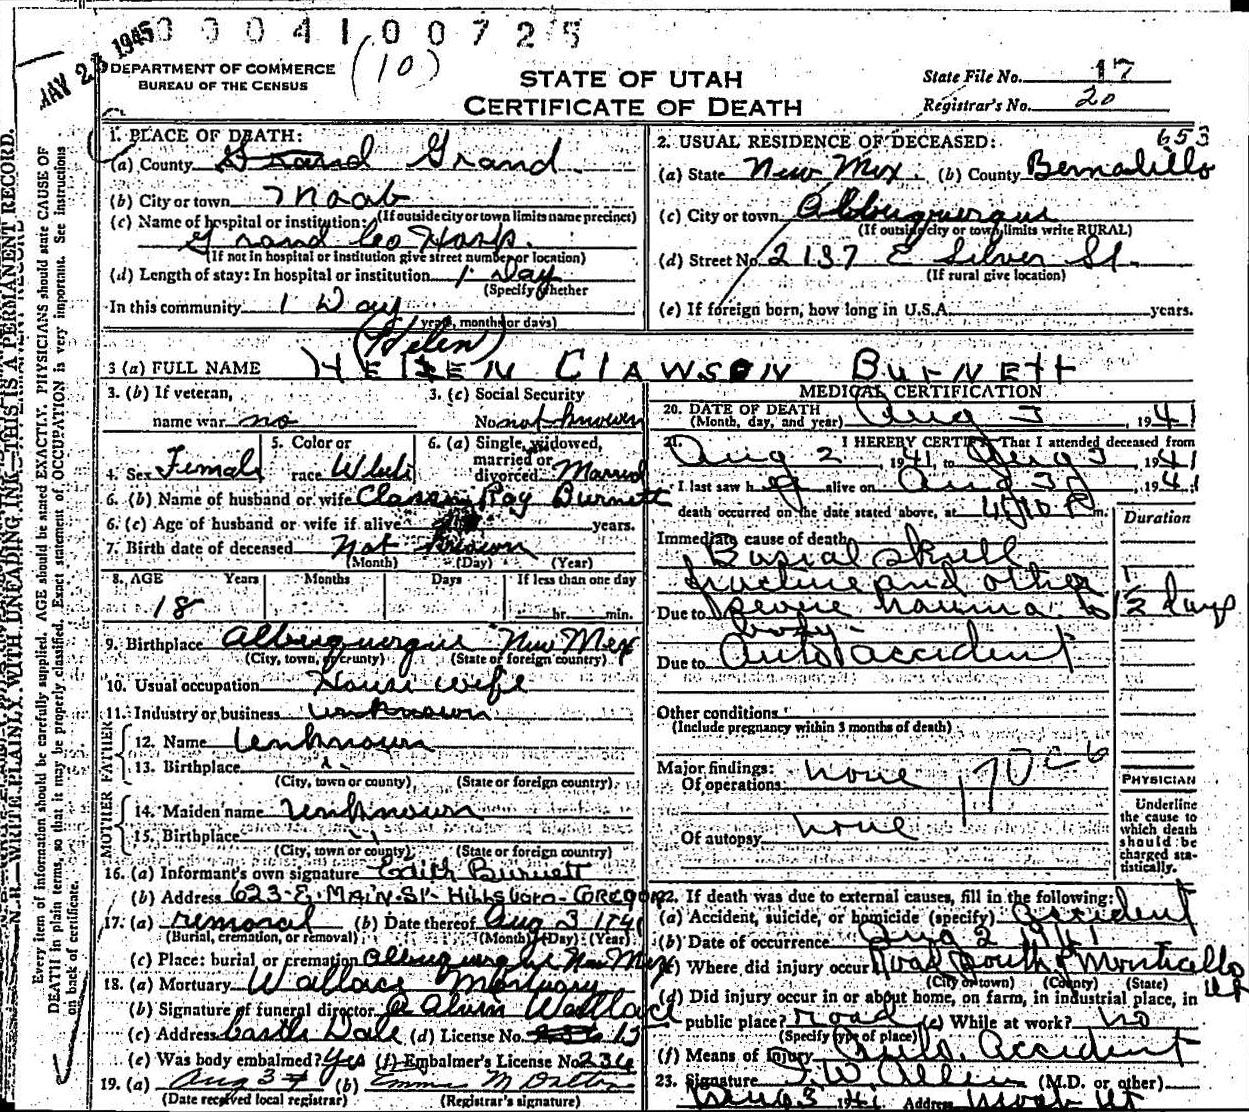 MAY 23 1945
0 0 0 4 1 0 0 7 2 5
(10)
DEPARTMENT OF COMMERCE
BUREAU OF THE CENSUS
STATE OF UTAH
CERTIFICATE OF DEATH
State File No. 17
Registrar's No. 20
1. PLACE OF DEATH:
(a) County Grand Grand
(b) City or town Moab
(If outside city or town limits name precinct)
(c) Name of hospital or institution:
Grand Co Hosp.
(If not in hospital or institution give street number or location)
(d) Length of stay: In hospital or institution 1 Day
(Specify whether
In this community 1 Day
years, months or days)
653
2. USUAL RESIDENCE OF DECEASED:
(a) State New Mex. (b) County Bernalillo
(c) City or town Albuquerque
(If outside city or town limits write RURAL)
(d) Street No. 2137 E Silver St.
(If rural give location)
(e) If foreign born, how long in U.S.A. years.
(Helen)
3 (a) FULL NAME HELEN CLAWSON BurNEtt
3. (b) If veteran,
name war no
3. (c) Social Security
No. not known
4. Sex Female
5. Color or
race White
6. (a) Single, widowed,
married or
divorced Married
6. (b) Name of husband or wife Roy Burnett
6. (c) Age of husband or wife if alive years.
7. Birth date of deceased Not Known
(Month) (Day) (Year)
8. AGE Years Months Days If less than one day
18 hr. min.
9. Birthplace Albuquerque New Mex
(City, town, or county) (State or foreign country)
10. Usual occupation House wife
11. Industry or business unknown
FATHER
12. Name Unknown
13. Birthplace
(City, town or county) (State or foreign country)
MOTHER
14. Maiden name unknown
15. Birthplace
(City, town or county) (State or foreign country)
16. (a) Informant's own signature Edith Burnett
(b) Address 623-E. MAIN. St- Hillsboro- OREGON
17. (a) removal (b) Date thereof Aug 3 1941
(Burial, cremation, or removal) (Month) (Day) (Year)
(c) Place: burial or cremation Albuquerque New Mex
18. (a) Mortuary Wallace Mortuary
(b) Signature of funeral director Alvin Wallace
(c) Address Castle Dale (d) License No. 13
(e) Was body embalmed? Yes (f) Embalmer's License No. 236
19. (a) Aug 3 (b) Emma M Dalton
(Date received local registrar) (Registrar's signature)
MEDICAL CERTIFICATION
20. DATE OF DEATH
(Month, day, and year) Aug 3, 1941
21. I HEREBY CERTIFY That I attended deceased from
Aug 2, 1941, to Aug 3, 1941
I last saw her alive on Aug 3, 1941
death occurred on the date stated above, at 4:10 P m.
Duration
Immediate cause of death Basial skull
fracture and other
Due to severe trauma to 1/2 days
body-
Due to Auto accident
Other conditions
(Include pregnancy within 3 months of death)
Major findings:
Of operations none
170
Of autopsy none
PHYSICIAN
Underline
the cause to
which death
should be
charged sta-
tistically.
22. If death was due to external causes, fill in the following:
(a) Accident, suicide, or homicide (specify) accident
(b) Date of occurrence Aug 2 1941
(c) Where did injury occur Road South of Monticello
(City or town) (County) (State)
Ut
(d) Did injury occur in or about home, on farm, in industrial place, in
public place? road (e) While at work? no
(Specify type of place)
(f) Means of Injury Auto. Accident
23. Signature I. W. Allen (M.D. or other)
Aug 3 1941 Address Moab Ut
N. B.—WRITE PLAINLY, WITH UNFADING INK—THIS IS A PERMANENT RECORD.
Every item of information should be carefully supplied. AGE should be stated EXACTLY. PHYSICIANS should state CAUSE OF
DEATH in plain terms, so that it may be properly classified. Exact statement of OCCUPATION is very important. See instructions
on back of certificate.